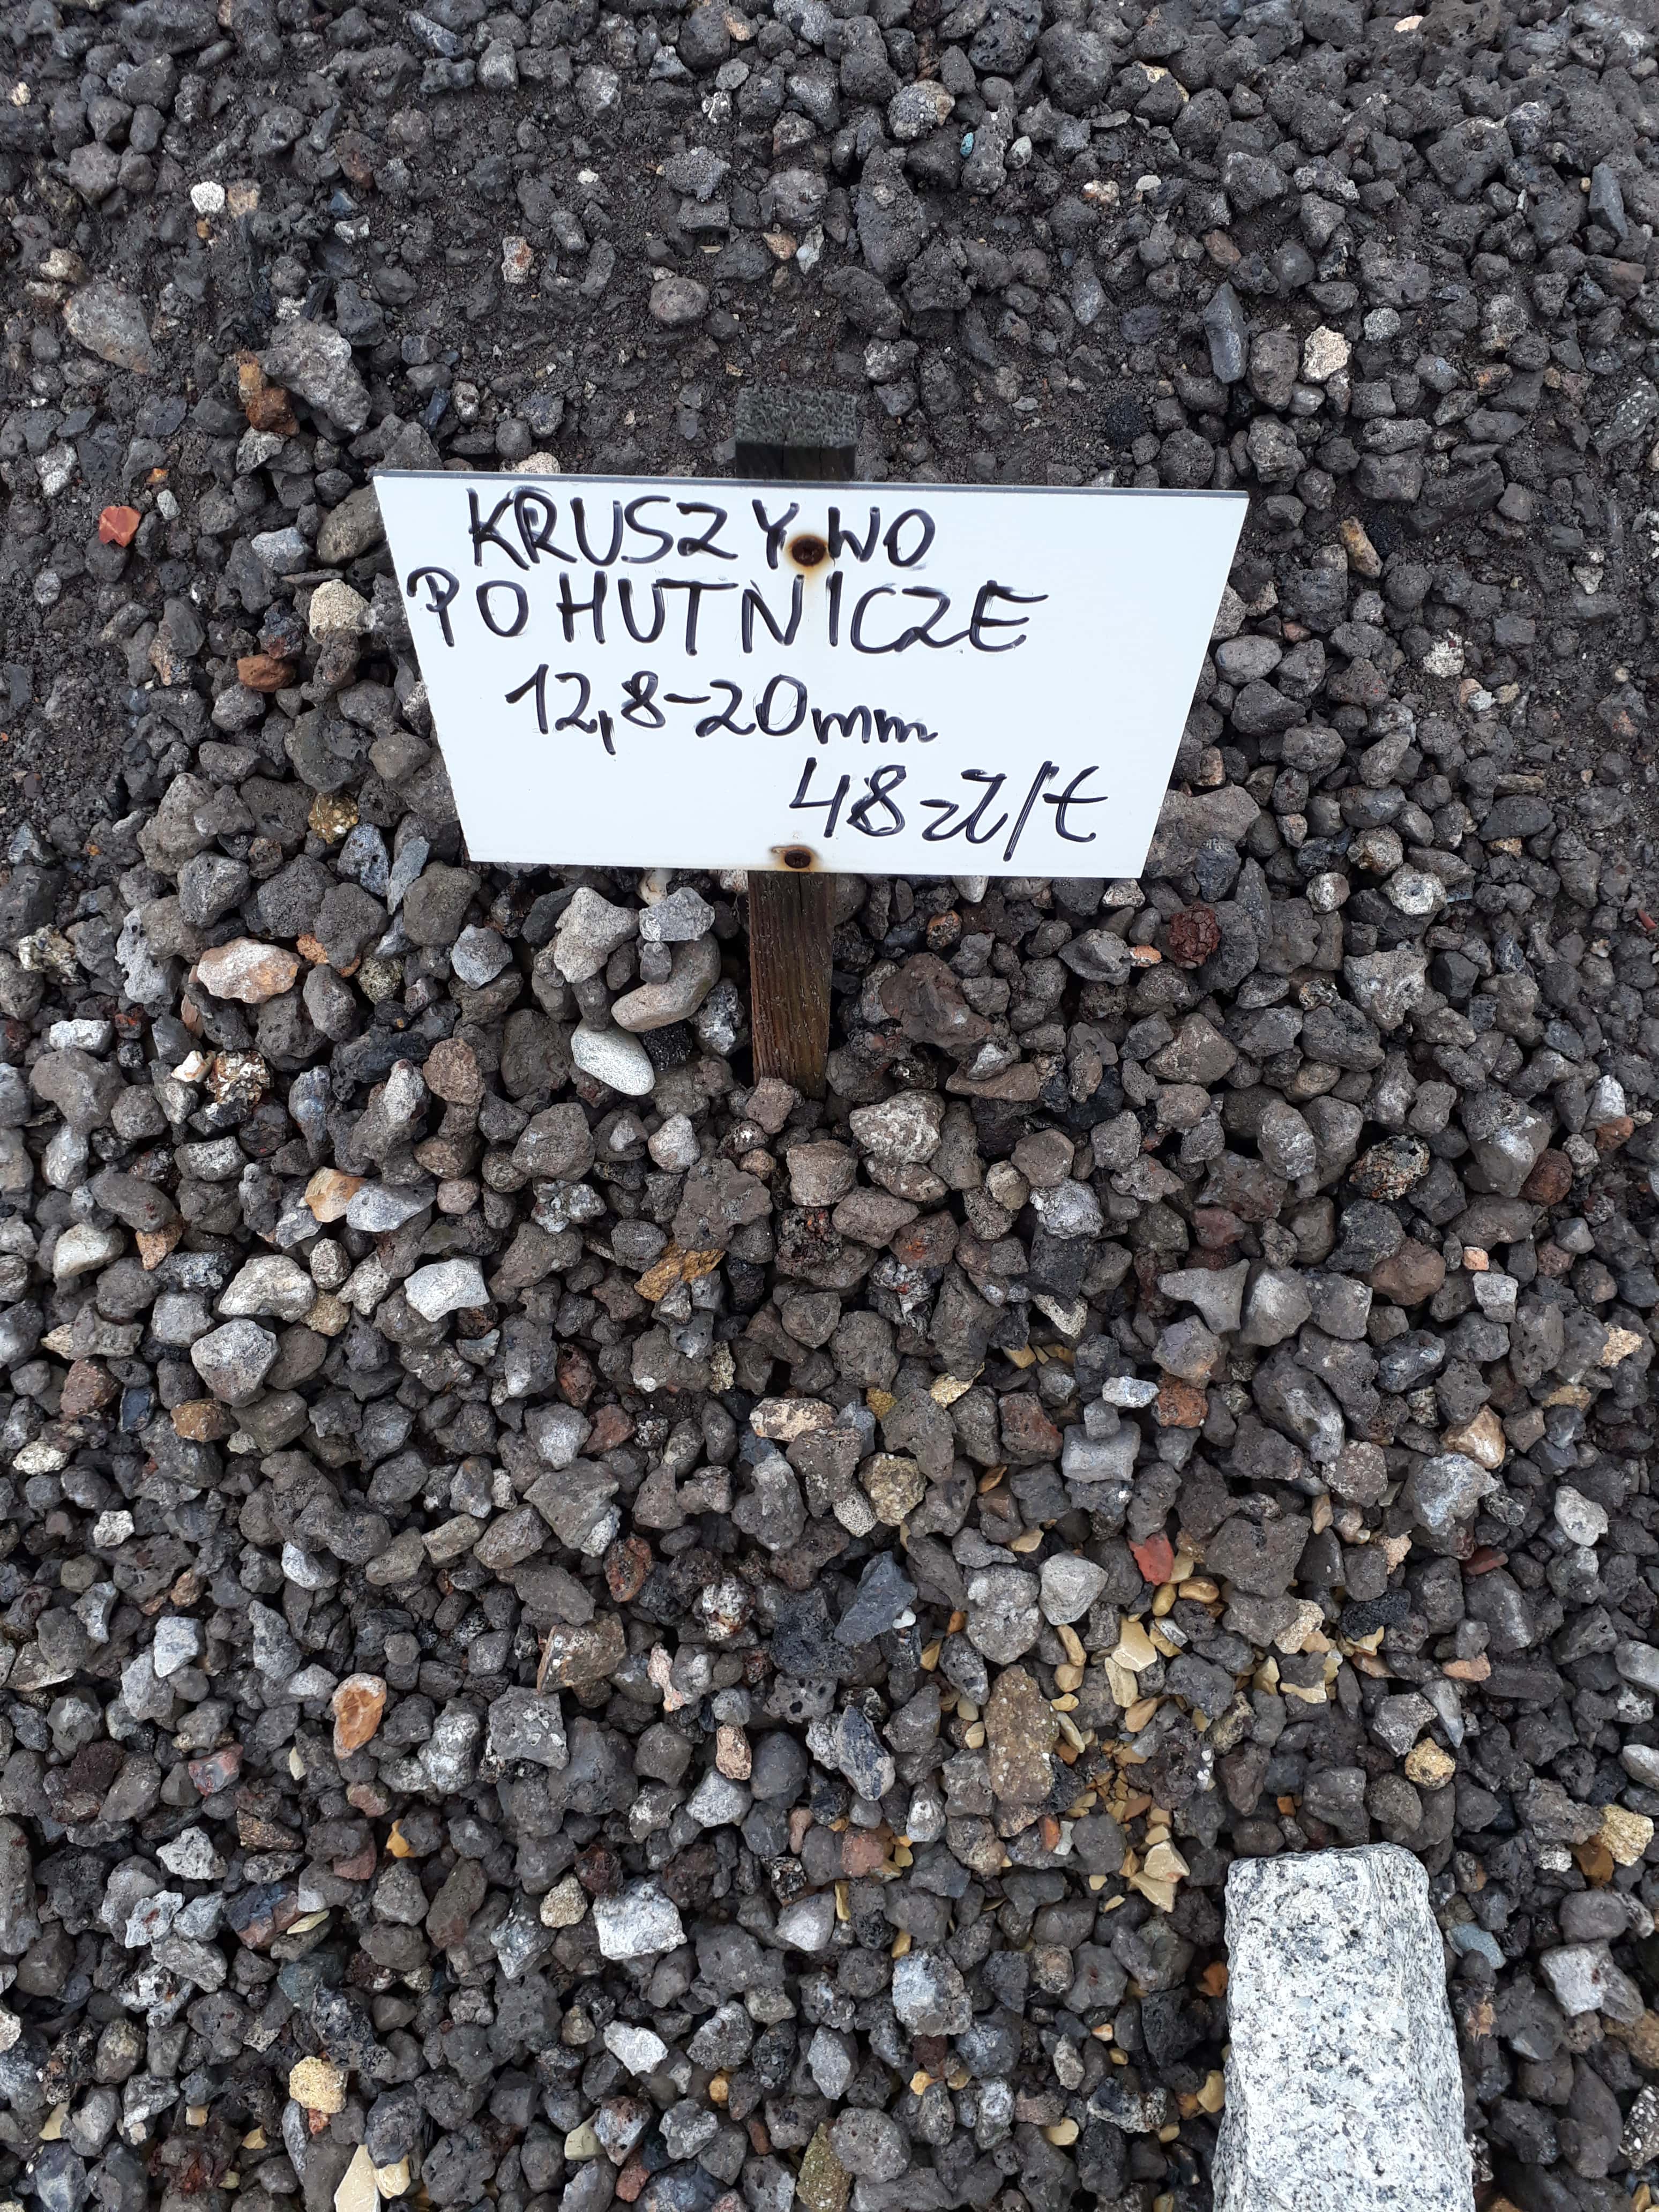 KRUSZYWO
POHUTNICZE
12,8-20mm
48zł/t